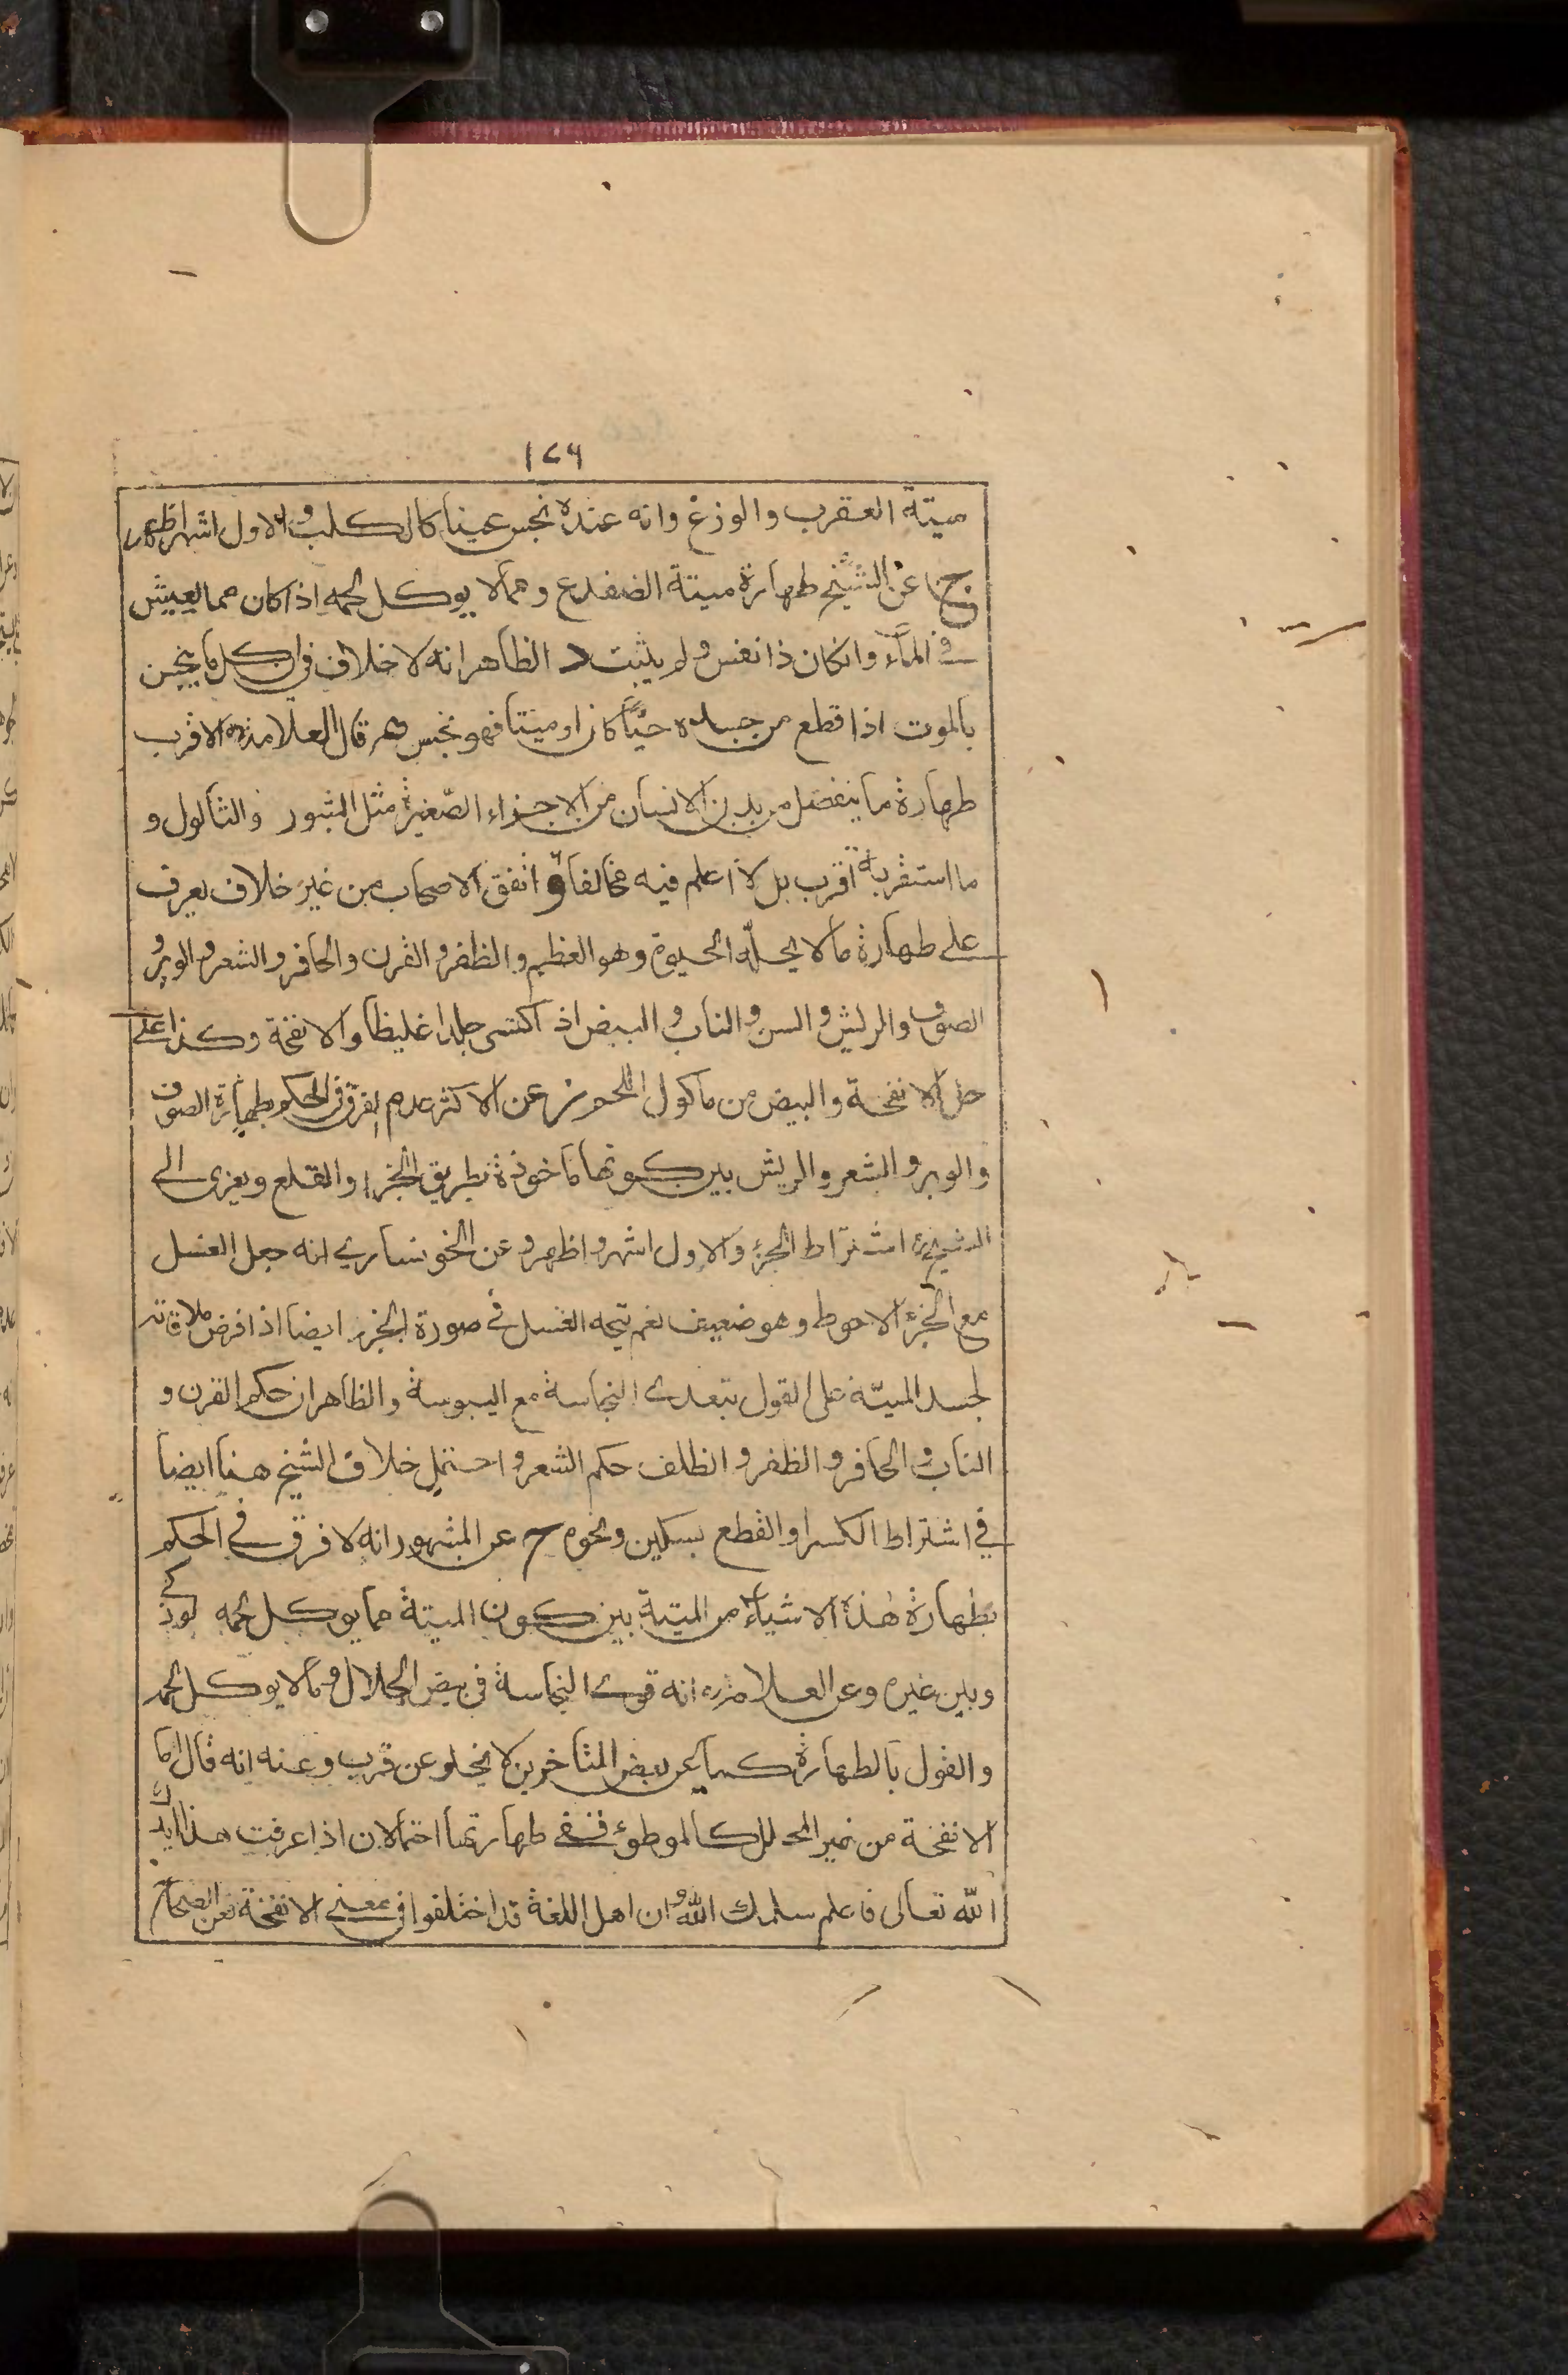 ١٢٦
ميتة العقرب والوزغ وانه عنده نجس عينا كالكلب والاول اشهر واظهر
ج عن الشيخ طهارة ميتة الضفدع ومما لا يوكل لحمه اذا كان مما يعيش
في المآء وانكان ذا نفس ولم يثبت د الظاهر انه لا خلاف في ان كل ما ينجس
بالموت اذا قطع من جسده حيّا كان او ميتا فهو نجس قال العلامة ره الاقرب
طهارة ما ينفصل من بدن الانسان من الاجزاء الصّغيرة مثل البثور والثألول و
ما استقربه اقرب بل لا اعلم فيه مخالفا و اتفق الاصحاب من غير خلاف يعرف
على طهارة ما لا يحلّه الحيوة وهو العظم والظفر والقرن والحافر والشعر والوبر و
الصوف والريش والسن والناب والبيض اذ اكتسى جلدا غليظا والانفخة وكذا على
حل الانفخة والبيض من ماكول اللحم ز عن الاكثر عدم الفرق في الحكم بطهارة الصوف
والوبر والشعر والريش بين كونها ماخوذة بطريق الجز او القلع ويعزى الى
الشيخ ره اشتراط الجز والاول اشهر واظهر وعن الخونساري انه جعل الغسل
مع الجز الاحوط وهو ضعيف نعم يتجه الغسل في صورة الجز ايضا اذا فرض ملاقاته
لجسد الميتة على القول بتعدى النجاسة مع اليبوسة والظاهر ان حكم القرن و
الناب والحافر والظفر والظلف حكم الشعر واحتمل خلاف الشيخ هنا ايضا
في اشتراط الكسر او القطع بسكين ونحوه ح عن المشهور انه لا فرق في الحكم
بطهارة هٰذه الاشياء من الميتة بين كون الميتة مما يوكل لحمه لو ذكى
وبين غيره وعن العلامة ره انه قوى النجاسة في بيض الجلال وما لا يوكل لحمه
والقول بالطهارة كما عن بعض المتاخرين لا يخلو عن قرب وعنه انه قال اما
الانفخة من غير المحلل كالموطوء ففي طهارتها احتمالان اذا عرفت هذا ايدك
اللّه تعالى فاعلم سلمك اللّه ان اهل اللغة قد اختلفوا في معنى الانفخة فعن الصحاح